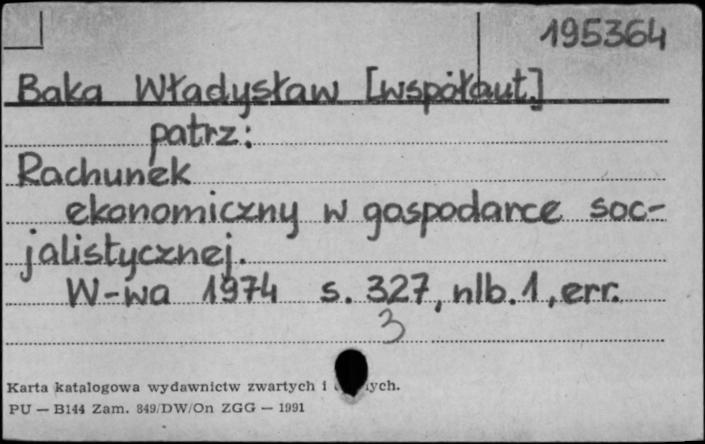 195364
Baka Władysław [współaut.]
patrz:
Rachunek
ekonomiczny w gospodarce soc-
jalistycznej.
W-wa 1974 s. 327, nlb. 1, err.
3
Karta katalogowa wydawnictw zwartych i
PU — B144 Zam. 849/DW/On ZGG — 1991